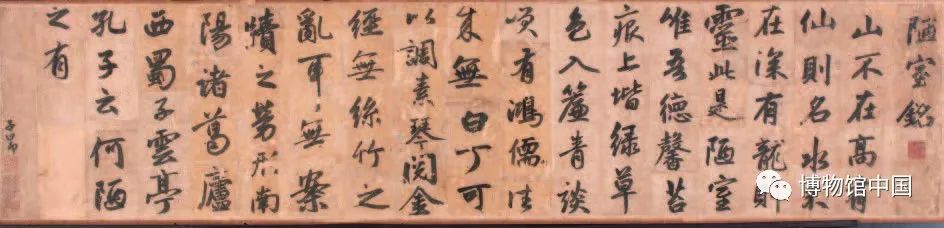 陋室銘
山不在高有
仙則名水不
在深有龍則
靈此是陋室
唯吾德馨苔
痕上堦緑草
色入簾青談
笑有鴻儒往
来無白丁可
以調素琴閱金
經無絲竹之
亂耳無案
牘之勞形南
陽諸葛廬
西蜀子雲亭
孔子云何陋
之有
子昂
博物馆中国